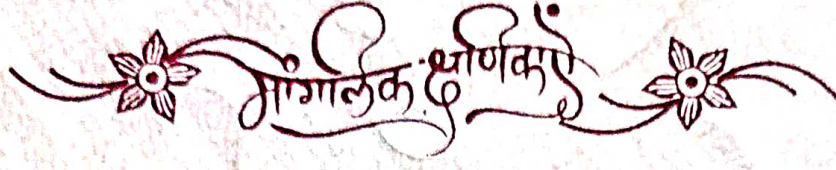 मांगलिक क्षणिकाऐं